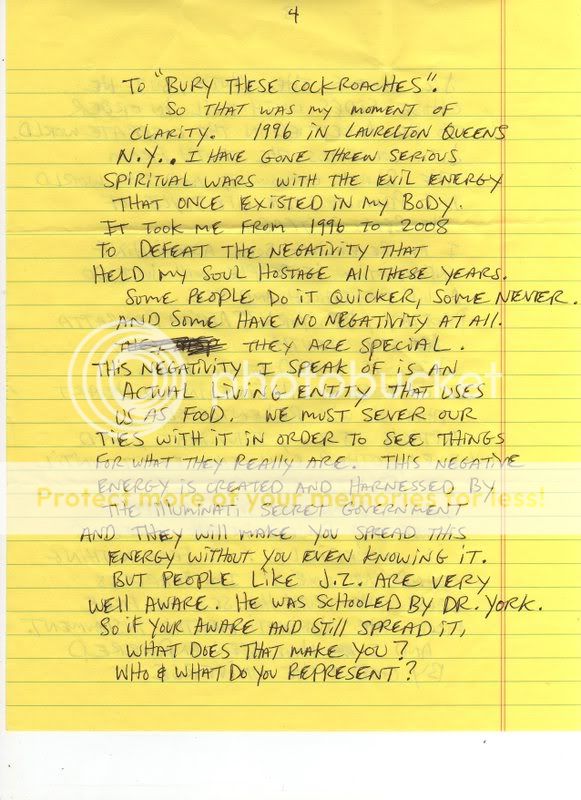 4
TO "BURY THESE COCKROACHES".
SO THAT WAS MY MOMENT OF
CLARITY. 1996 IN LAURELTON QUEENS
N.Y.. I HAVE GONE THREW SERIOUS
SPIRITUAL WARS WITH THE EVIL ENERGY
THAT ONCE EXISTED IN MY BODY.
IT TOOK ME FROM 1996 TO 2008
TO DEFEAT THE NEGATIVITY THAT
HELD MY SOUL HOSTAGE ALL THESE YEARS.
SOME PEOPLE DO IT QUICKER, SOME NEVER.
AND SOME HAVE NO NEGATIVITY AT ALL.
THEY ARE SPECIAL.
THIS NEGATIVITY I SPEAK OF IS AN
photobucket
ACTUAL LIVING ENTITY THAT USES
US AS FOOD. WE MUST SEVER OUR
TIES WITH IT IN ORDER TO SEE THINGS
FOR WHAT THEY REALLY ARE. THIS NEGATIVE
ENERGY IS CREATED AND HARNESSED BY
Protect more of your memories for less!
THE ILLUMINATI SECRET GOVERNMENT
AND THEY WILL MAKE YOU SPREAD THIS
ENERGY WITHOUT YOU EVEN KNOWING IT.
BUT PEOPLE LIKE J.Z. ARE VERY
WELL AWARE. HE WAS SCHOOLED BY DR. YORK.
SO IF YOUR AWARE AND STILL SPREAD IT,
WHAT DOES THAT MAKE YOU?
WHO & WHAT DO YOU REPRESENT?